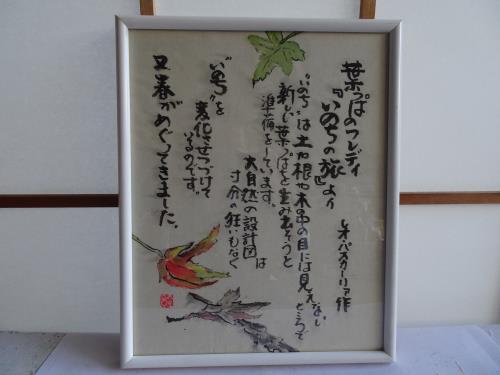 葉っぱのフレディ
『いのちの旅』より
レオ・バスカーリア作
“いのち”は土や根や木の中の目には見えないところで
新しい葉っぱを生み出そうと
準備をしています。
大自然の設計図は
寸分の狂いもなく
“いのち”を
変化させつづけて
いるのです”
又春がめぐってきました。